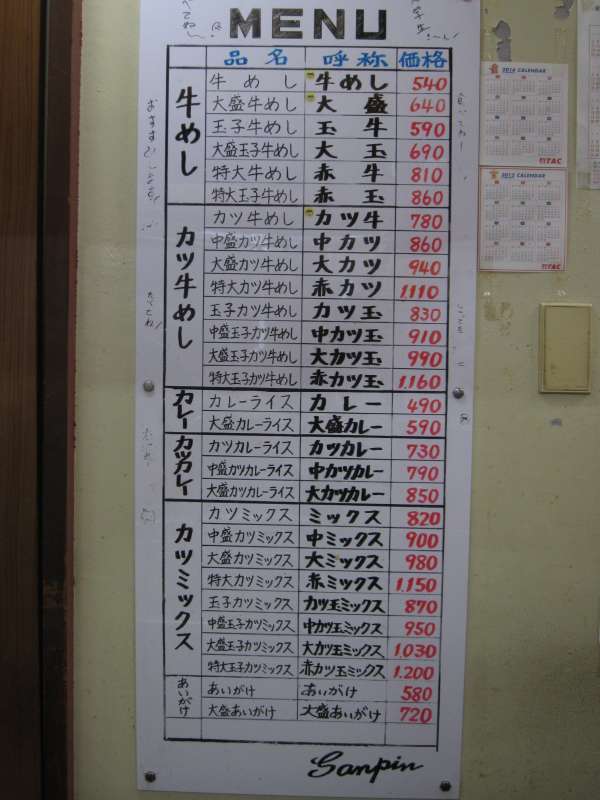 MENU
品名 呼称 価格
牛めし
牛めし 牛めし 540
大盛牛めし 大盛 640
玉子牛めし 玉牛 590
大盛玉子牛めし 大玉 690
特大牛めし 赤牛 810
特大玉子牛めし 赤玉 860
カツ牛めし
カツ牛めし カツ牛 780
中盛カツ牛めし 中カツ 860
大盛カツ牛めし 大カツ 940
特大カツ牛めし 赤カツ 1.110
玉子カツ牛めし カツ玉 830
中盛玉子カツ牛めし 中カツ玉 910
大盛玉子カツ牛めし 大カツ玉 990
特大玉子カツ牛めし 赤カツ玉 1.160
カレー
カレーライス カレー 490
大盛カレーライス 大盛カレー 590
カツカレー
カツカレーライス カツカレー 730
中盛カツカレーライス 中カツカレー 790
大盛カツカレーライス 大カツカレー 850
カツミックス
カツミックス ミックス 820
中盛カツミックス 中ミックス 900
大盛カツミックス 大ミックス 980
特大カツミックス 赤ミックス 1.150
玉子カツミックス カツ玉ミックス 870
中盛玉子カツミックス 中カツ玉ミックス 950
大盛玉子カツミックス 大カツ玉ミックス 1.030
特大玉子カツミックス 赤カツ玉ミックス 1.200
あいがけ
あいがけ あいがけ 580
大盛あいがけ 大盛あいがけ 720
Sanpin
2014 CALENDAR
TAC
2013 CALENDAR
TAC